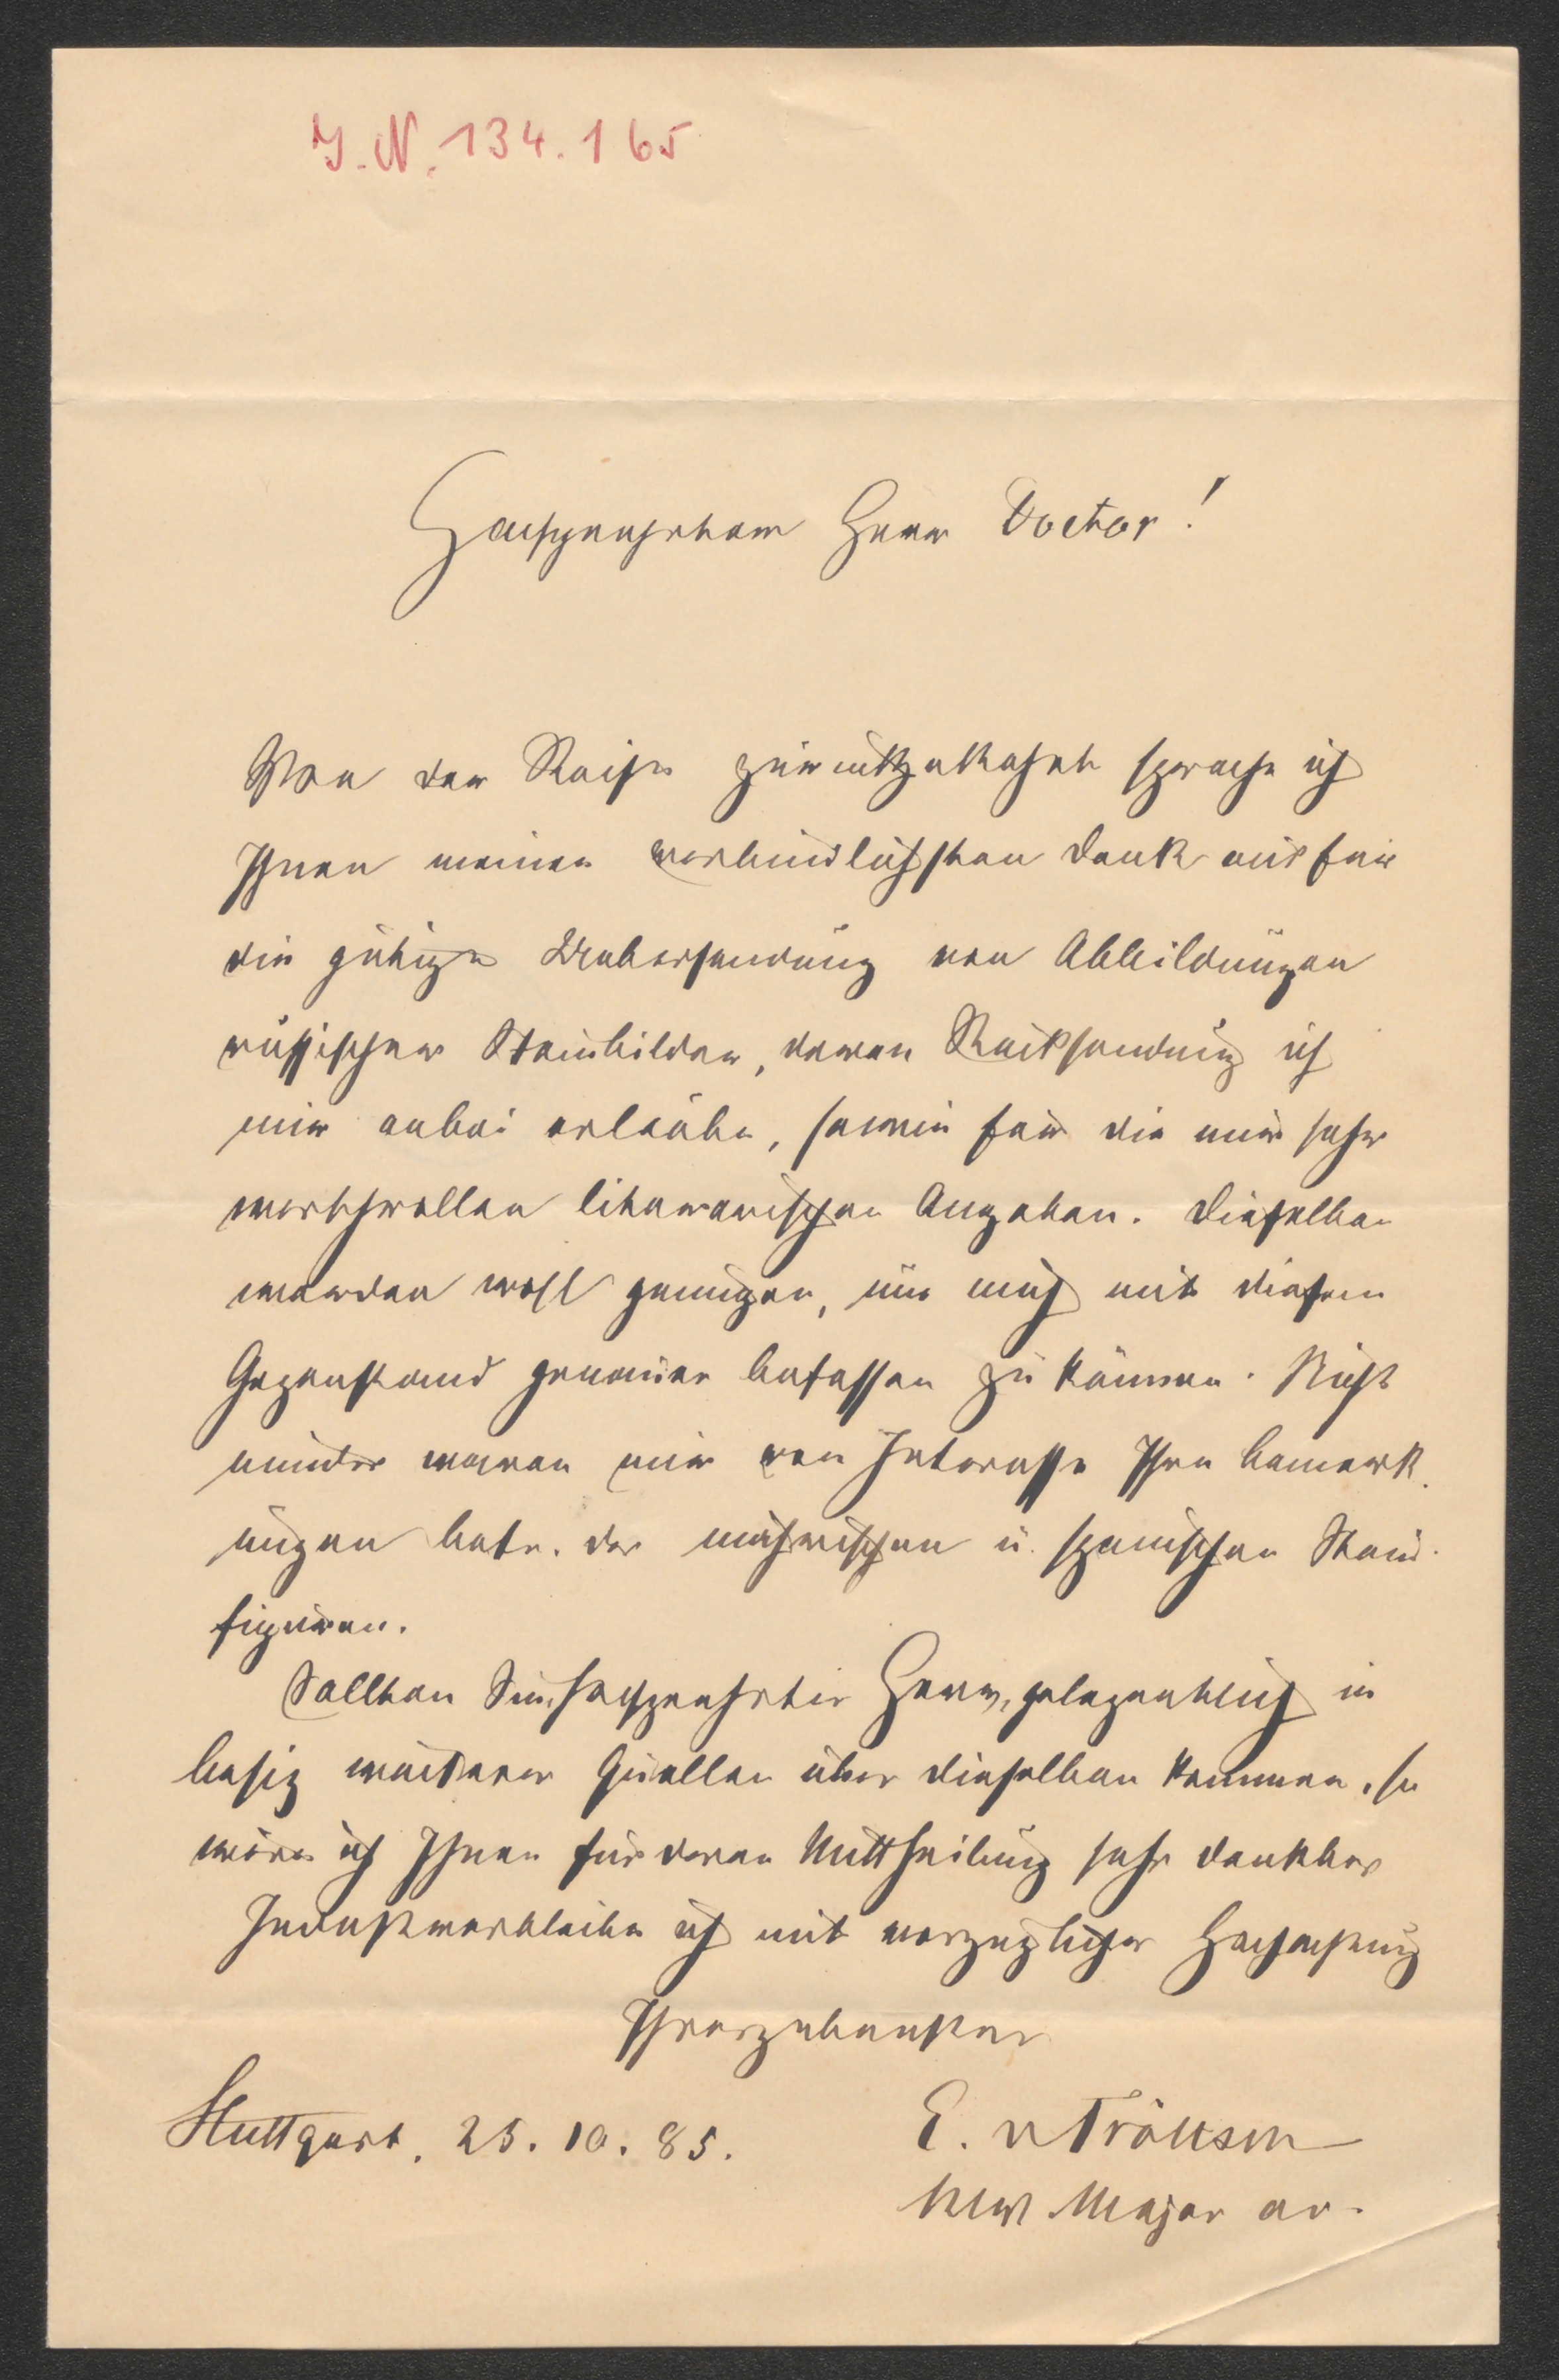 J. N. 134.165
Hochgeehrter Herr Doctor!
Von der Reise zurückgekehrt spreche ich
Ihnen meinen verbindlichsten Dank aus für
die gütige Uebersendung von Abbildungen
russischer Steinbilder, deren Rücksendung ich
mir anbei erlaube, sowie für die mir sehr
werthvollen literarischen Angaben. Dieselben
werden wohl genügen, um mich mit diesem
Gegenstand genauer befassen zu können. Nicht
minder waren mir von Interesse Ihre Bemerk
ungen betr. der mährischen u. spanischen Stein
figuren.
Sollten Sie, hochgeehrter Herr, gelegentlich in
Besiz weiterer Quellen über dieselben kommen, so
wäre ich Ihnen für deren Mittheilung sehr dankbar
Indess verbleibe ich mit vorzüglicher Hochachtung
Ihr ergebenster
Stuttgart, 25. 10. 85.
E. v Tröltsch
Major